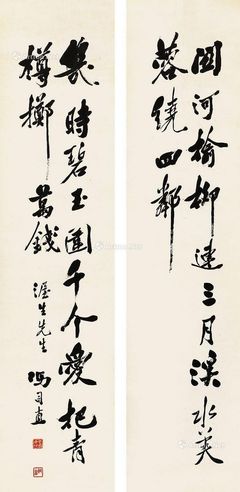 關河榆柳連三月溪水芙
蓉繞四鄰
幾時碧玉圍千个愛把青
樽擲萬錢
涯生先生 馮司直